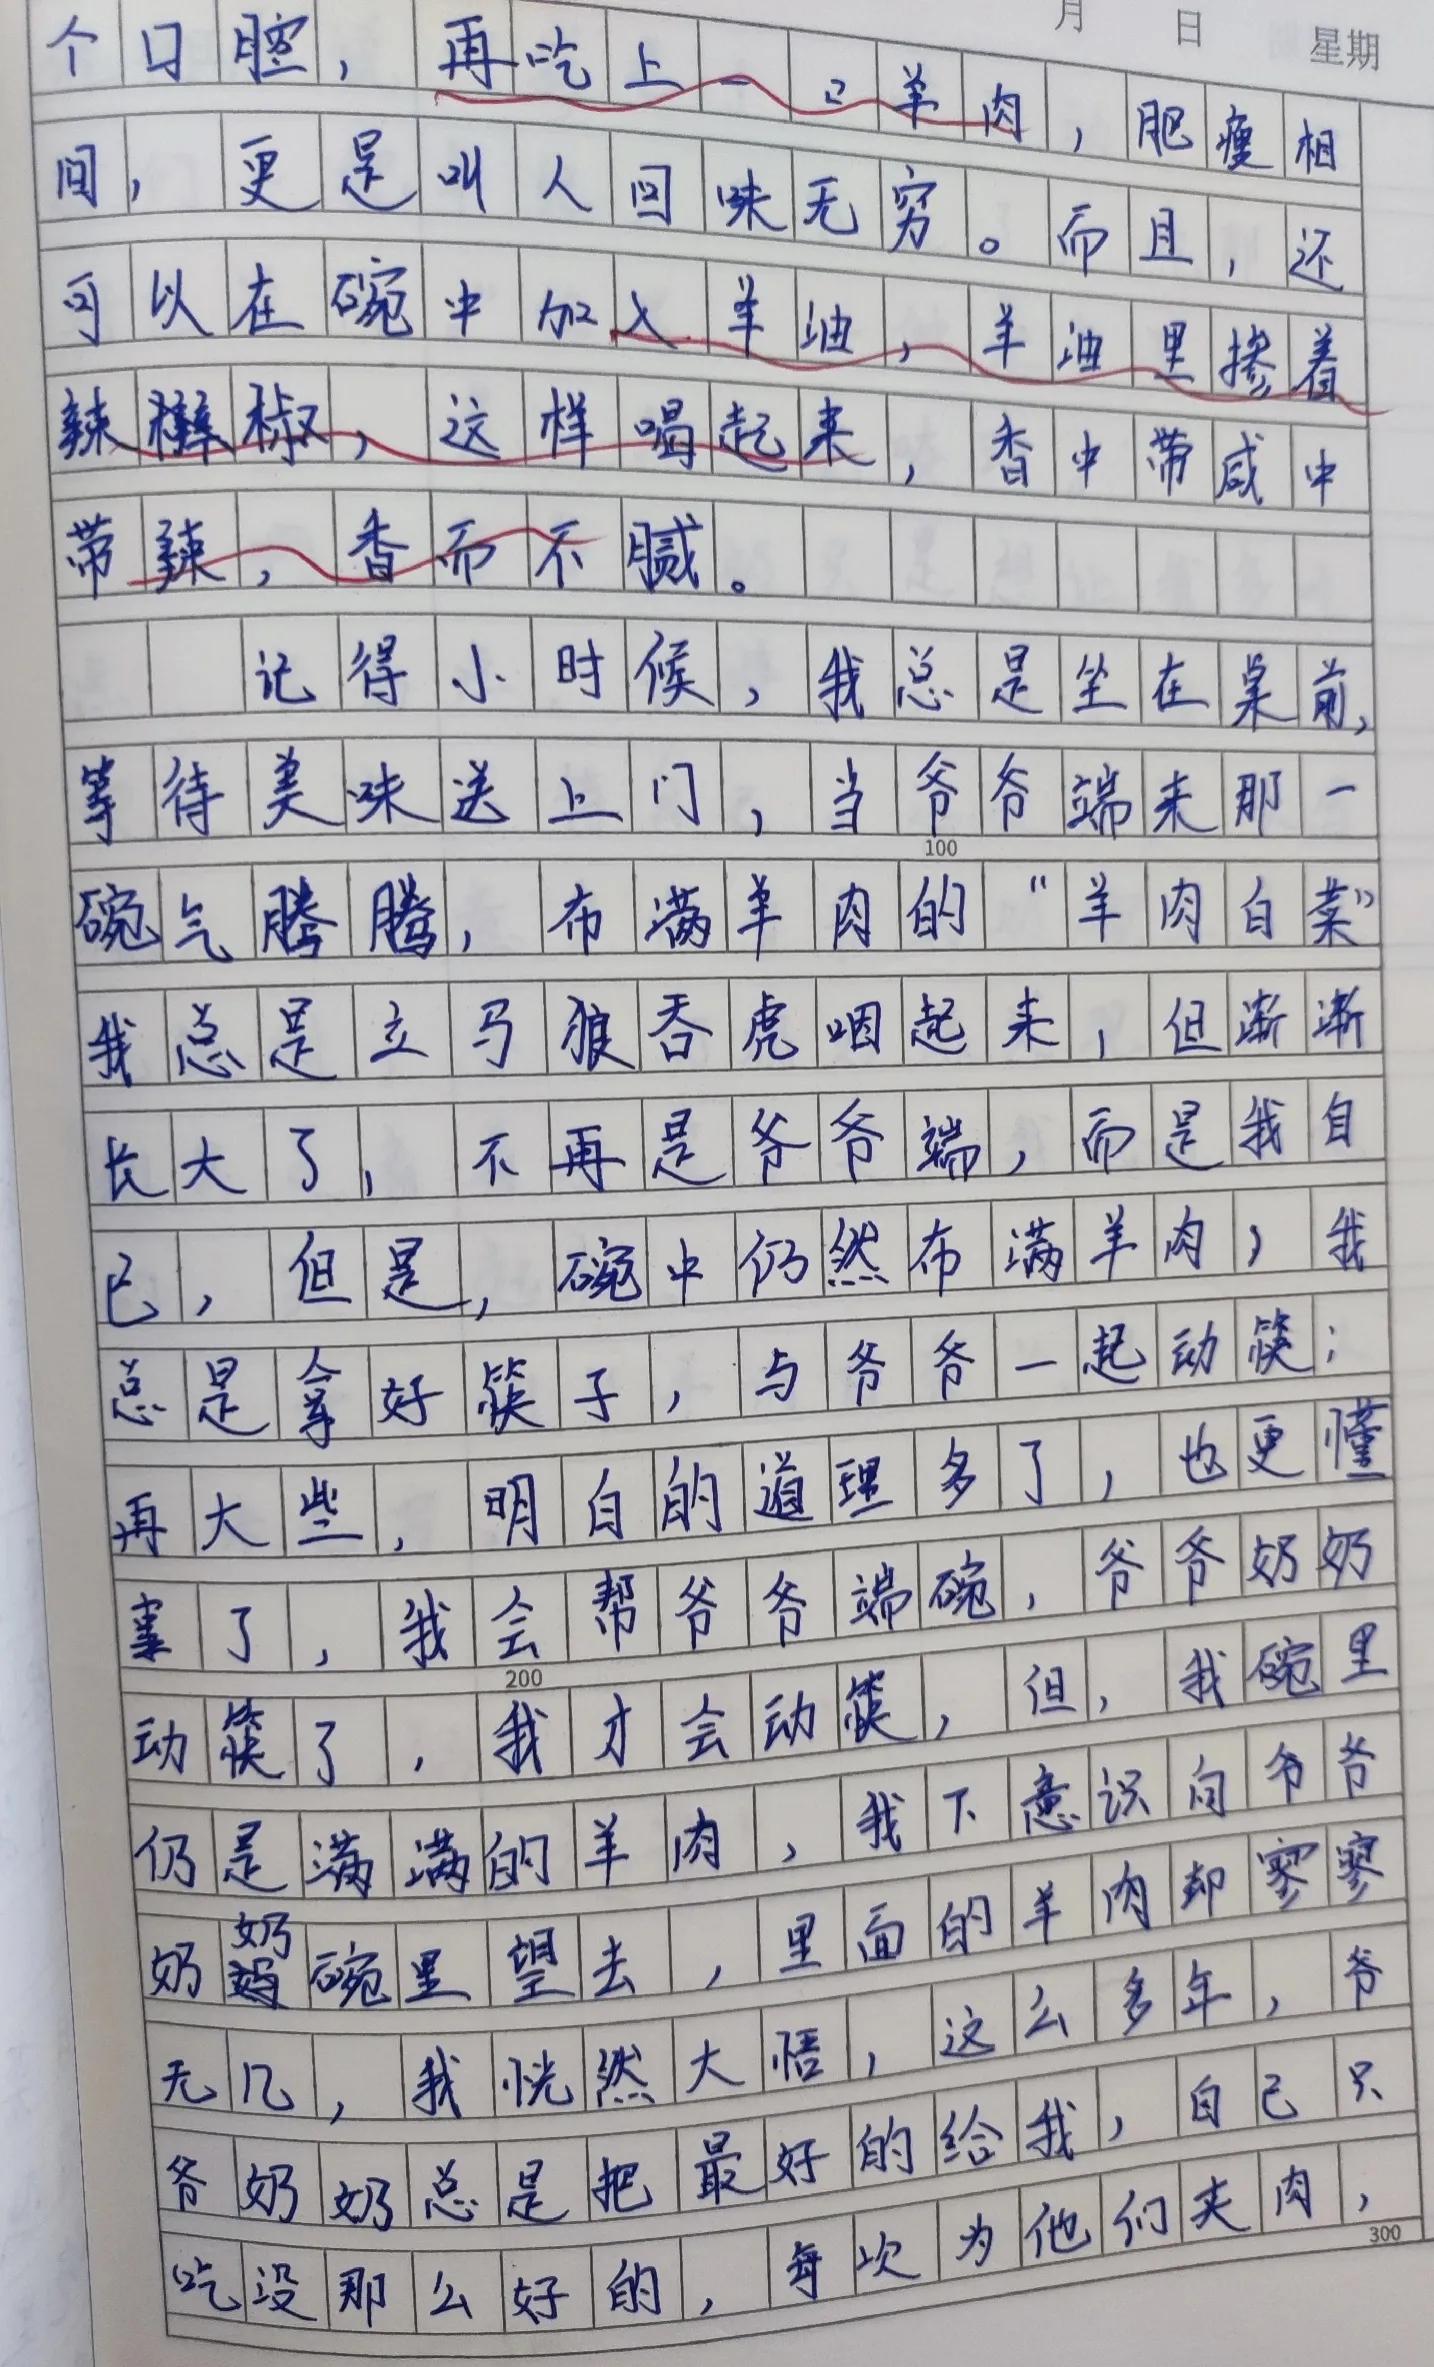 月 日 星期
个口腔，再吃上一口羊肉，肥瘦相
间，更是叫人回味无穷。而且，还
可以在碗中加入羊油，羊油里掺着
辣椒，这样喝起来，香中带咸中
带辣，香而不腻。
记得小时候，我总是坐在桌前，
等待美味送上门，当爷爷端来那一
100
碗气腾腾，布满羊肉的“羊肉白菜”
我总是立马狼吞虎咽起来，但渐渐
长大了，不再是爷爷端，而是我自
己，但是，碗中仍然布满羊肉，我
总是拿好筷子，与爷爷一起动筷；
再大些，明白的道理多了，也更懂
事了，我会帮爷爷端碗，爷爷奶奶
200
动筷了，我才会动筷，但，我碗里
仍是满满的羊肉，我下意识向爷爷
奶奶碗里望去，里面的羊肉却寥寥
无几，我恍然大悟，这么多年，爷
爷奶奶总是把最好的给我，自己只
吃没那么好的，每次为他们夹肉，
300